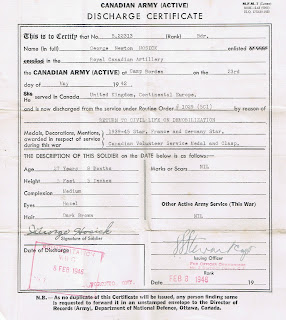 CANADIAN ARMY (ACTIVE)
DISCHARGE CERTIFICATE
This is to Certify that No. B.22313 (Rank) Bdr.
Name (in full) George Newton HOSICK enlisted
enrolled in Royal Canadian Artillery
the CANADIAN ARMY (ACTIVE) at Camp Borden on the 23rd
day of May 1942
He served in Canada United Kingdom, Continental Europe,
and is now discharged from the service under Routine Order 1029 (5C1) by reason of
RETURN TO CIVIL LIFE ON DEMOBILIZATION
Medals, Decorations, Mentions, 1939-45 Star, France and Germany Star,
awarded in respect of service during this war Canadian Volunteer Service Medal and Clasp.
THE DESCRIPTION OF THIS SOLDIER on the DATE below is as follows:—
Age Years 8 Months
Height 5 Feet Inches
Complexion Medium
Eyes Hazel
Hair Dark Brown
Marks or Scars NIL
Other Active Army Service (This War)
NIL
George Hosick
Signature of Soldier
Date of Discharge
6 FEB 1946
Issuing Officer
Rank
Date FEB 6 1946 19
N.B.— As no duplicate of this Certificate will be issued, any person finding same
is requested to forward it in an unstamped envelope to the Director of
Records (Army), Department of National Defence, Ottawa, Canada.